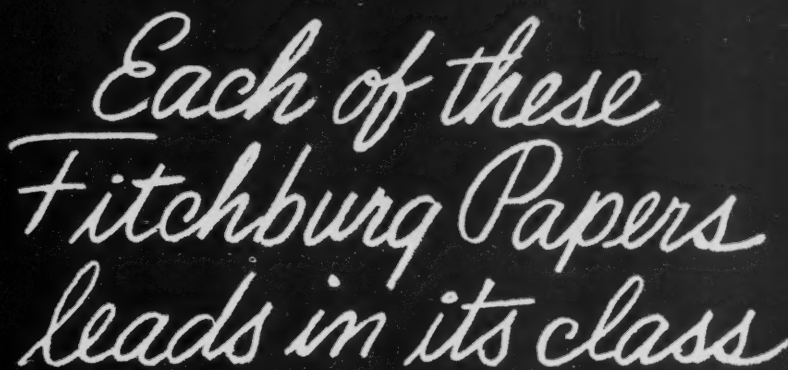 Each of these
Fitchburg Papers
leads in its class